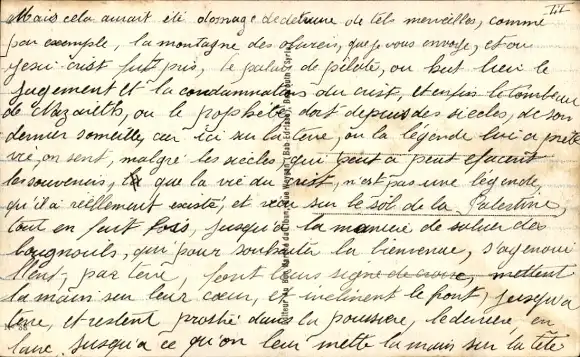 III
Mais cela aurait été domage de detruire de tels merveilles, comme
par exemple, la montagne des oliviers, que je vous envoye, et ou
Jesu-crist fut pris, le palais de pilate, ou but lieu le
Jugement et la condamnation du crist, et enfin le tombeau
de Nazareth, ou le prophête dort depuis des siecles, de son
dernier someille, car ici sur la terre, ou la légende lui a prété
vie, on sent, malgré les siecles, qui peut a peut efacent
les souvenirs, que la vie du crist, n'est pas une légende
qu'il a réellement existé, et sur le sol de la Palestine,
tout en fait fois, jusqu'a la maniere de saluer des
bougnouls, qui pour souhaiter la bienvenue, s'agenoui
llent, par terre, font leurs signe de croix, mettent
la main sur leur cœur, et inclinent le front, jusqu'a
terre, et restent prostré dans la poussiere, le derière, en
l'aire, jusqu'a ce qu'on leur mette la main sur la tête